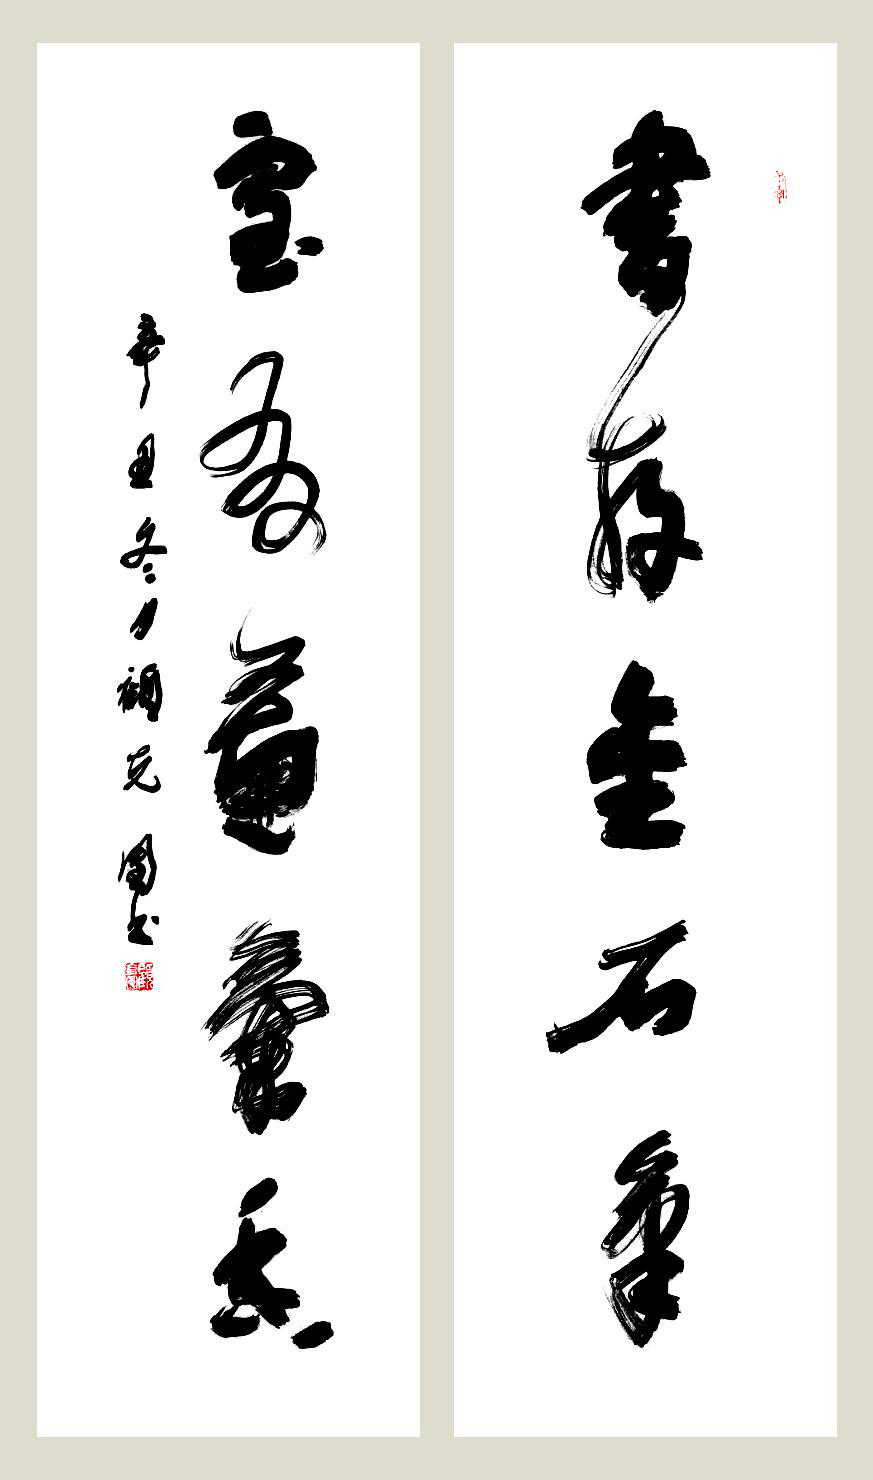 書存金石氣
室有蕙蘭香
辛丑冬月顧克
書